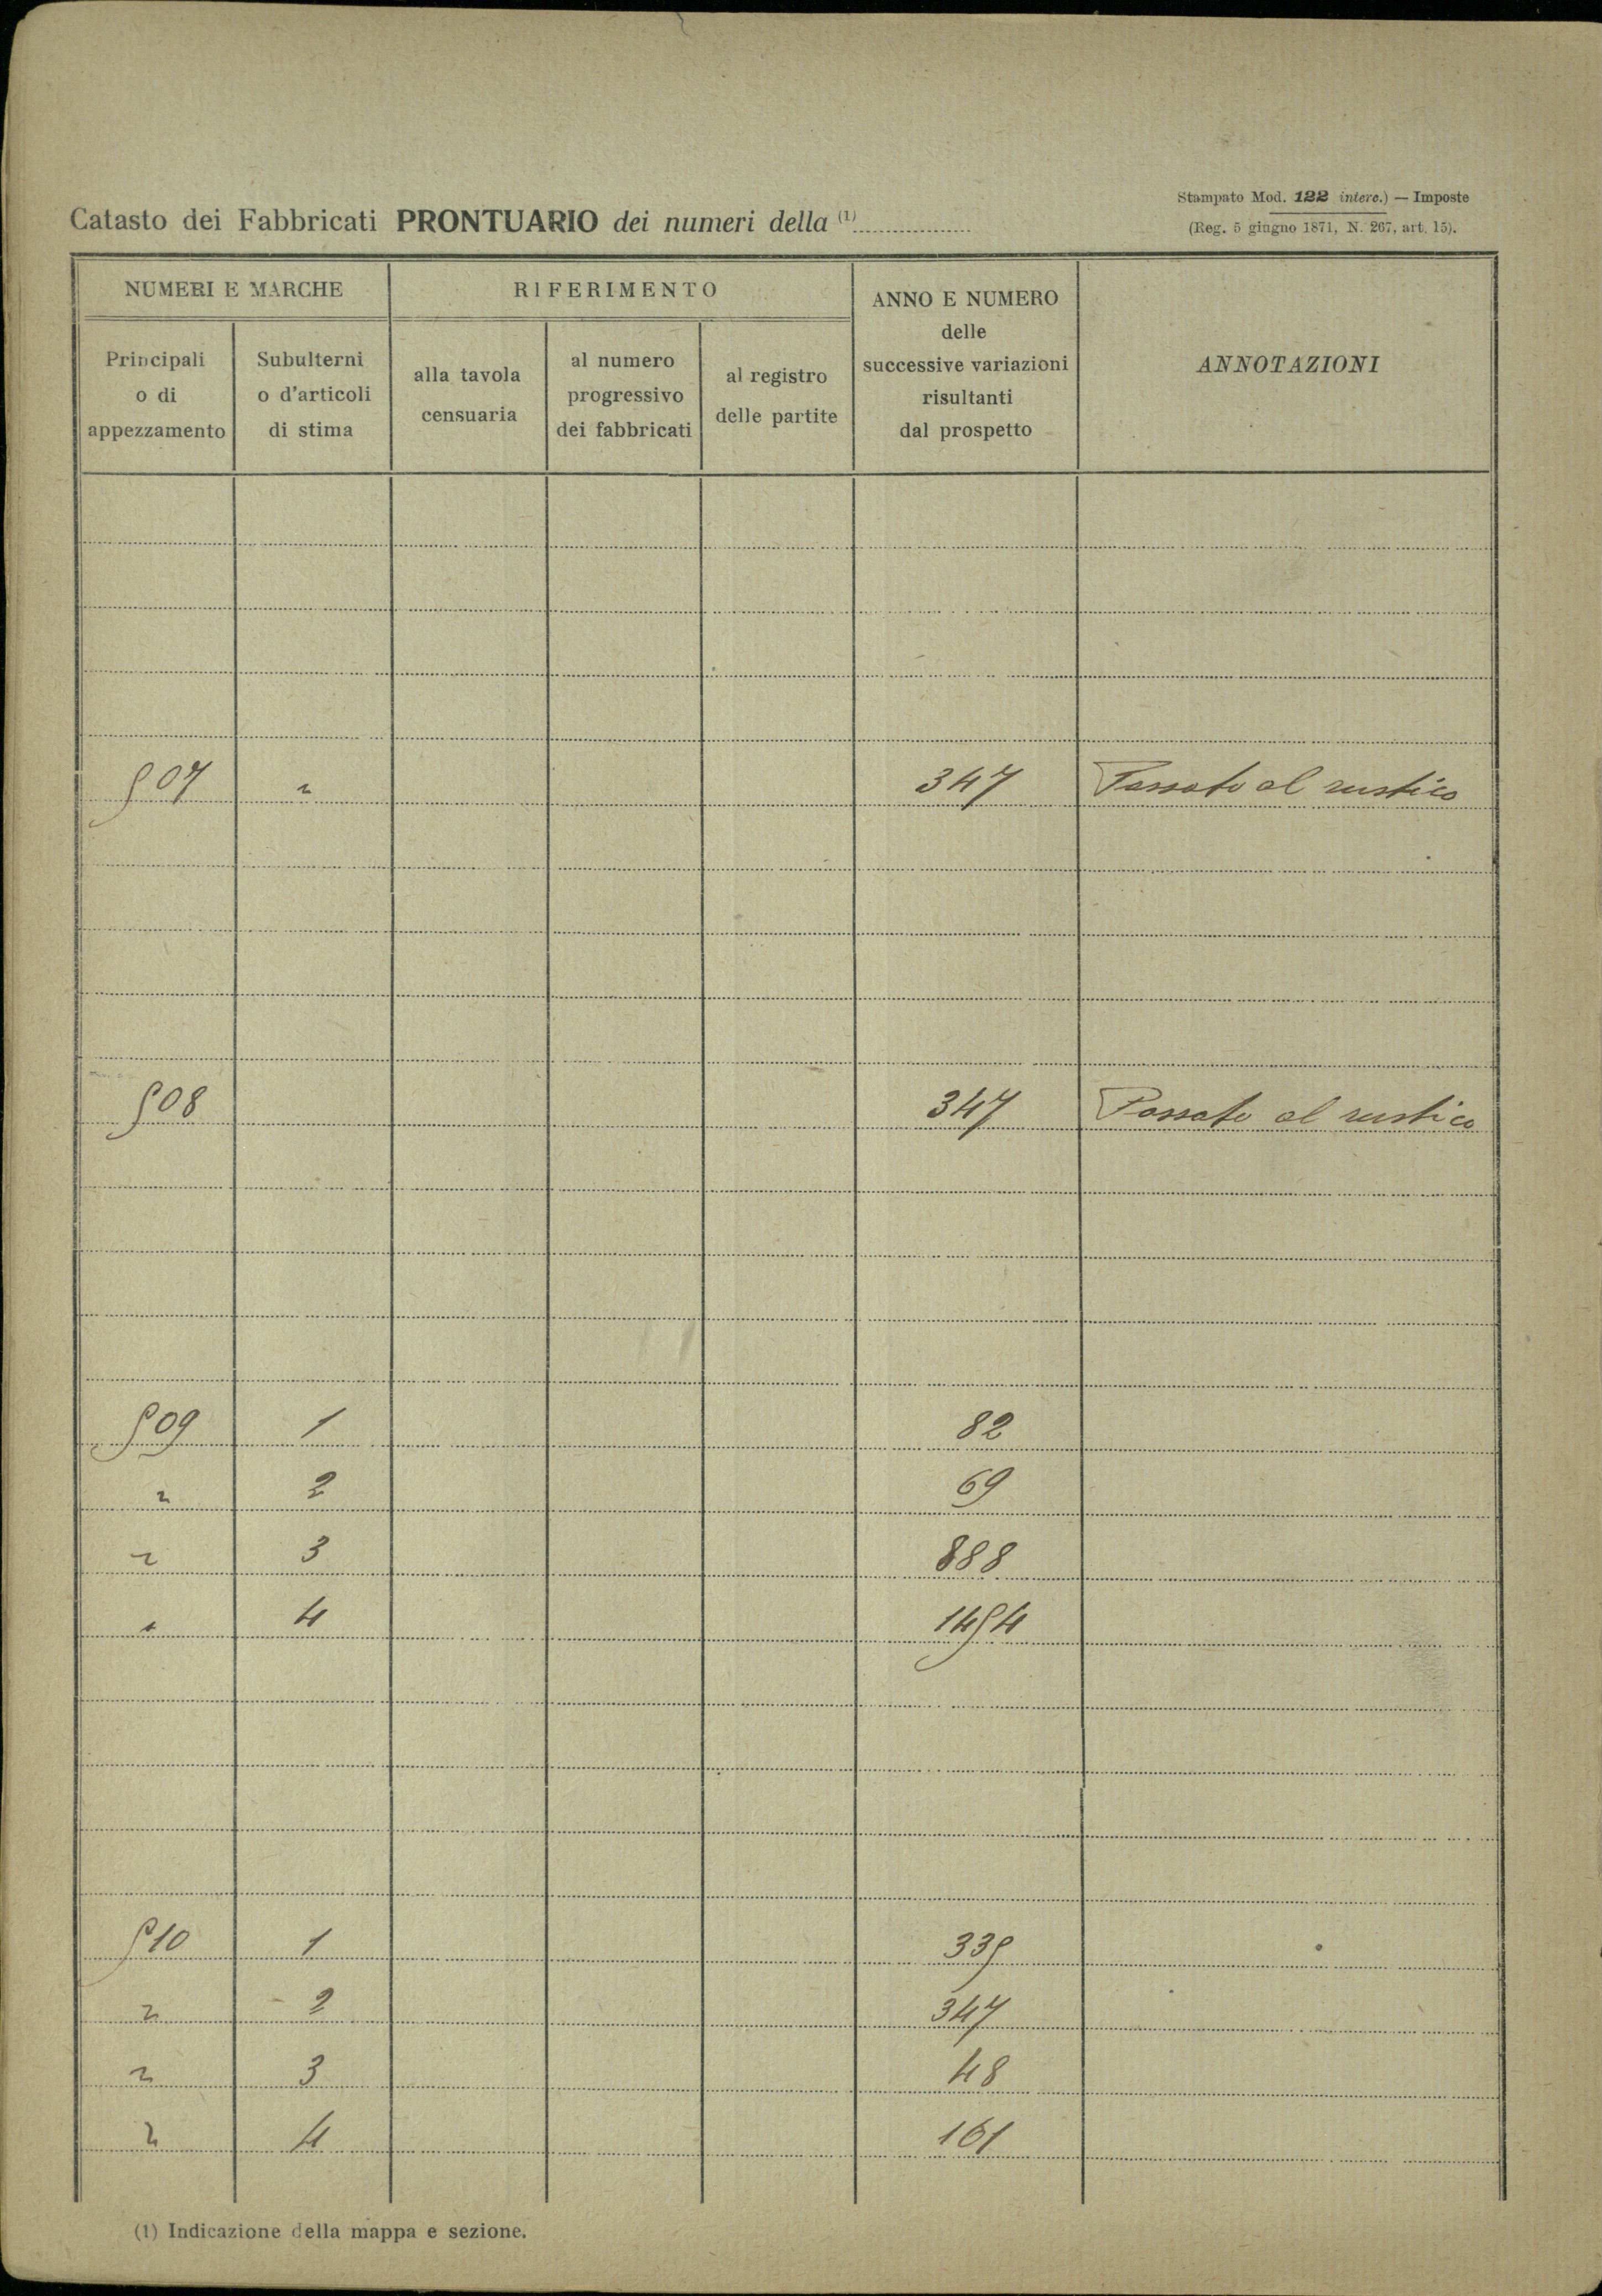 Stampato Mod. 122 interc.) — Imposte
Catasto dei Fabbricati PRONTUARIO dei numeri della (1)
(Reg. 5 giugno 1871, N. 267, art. 15).
NUMERI E MARCHE RIFERIMENTO ANNO E NUMERO delle successive variazioni risultanti dal prospetto ANNOTAZIONI
Principali o di appezzamento Subulterni o d'articoli di stima alla tavola censuaria al numero progressivo dei fabbricati al registro delle partite
507 " 347 Passato al rustico
508 347 Passato al rustico
509 1 82
" 2 69
" 3 888
" 4 1454
510 1 335
" 2 347
" 3 48
" 4 161
(1) Indicazione della mappa e sezione.